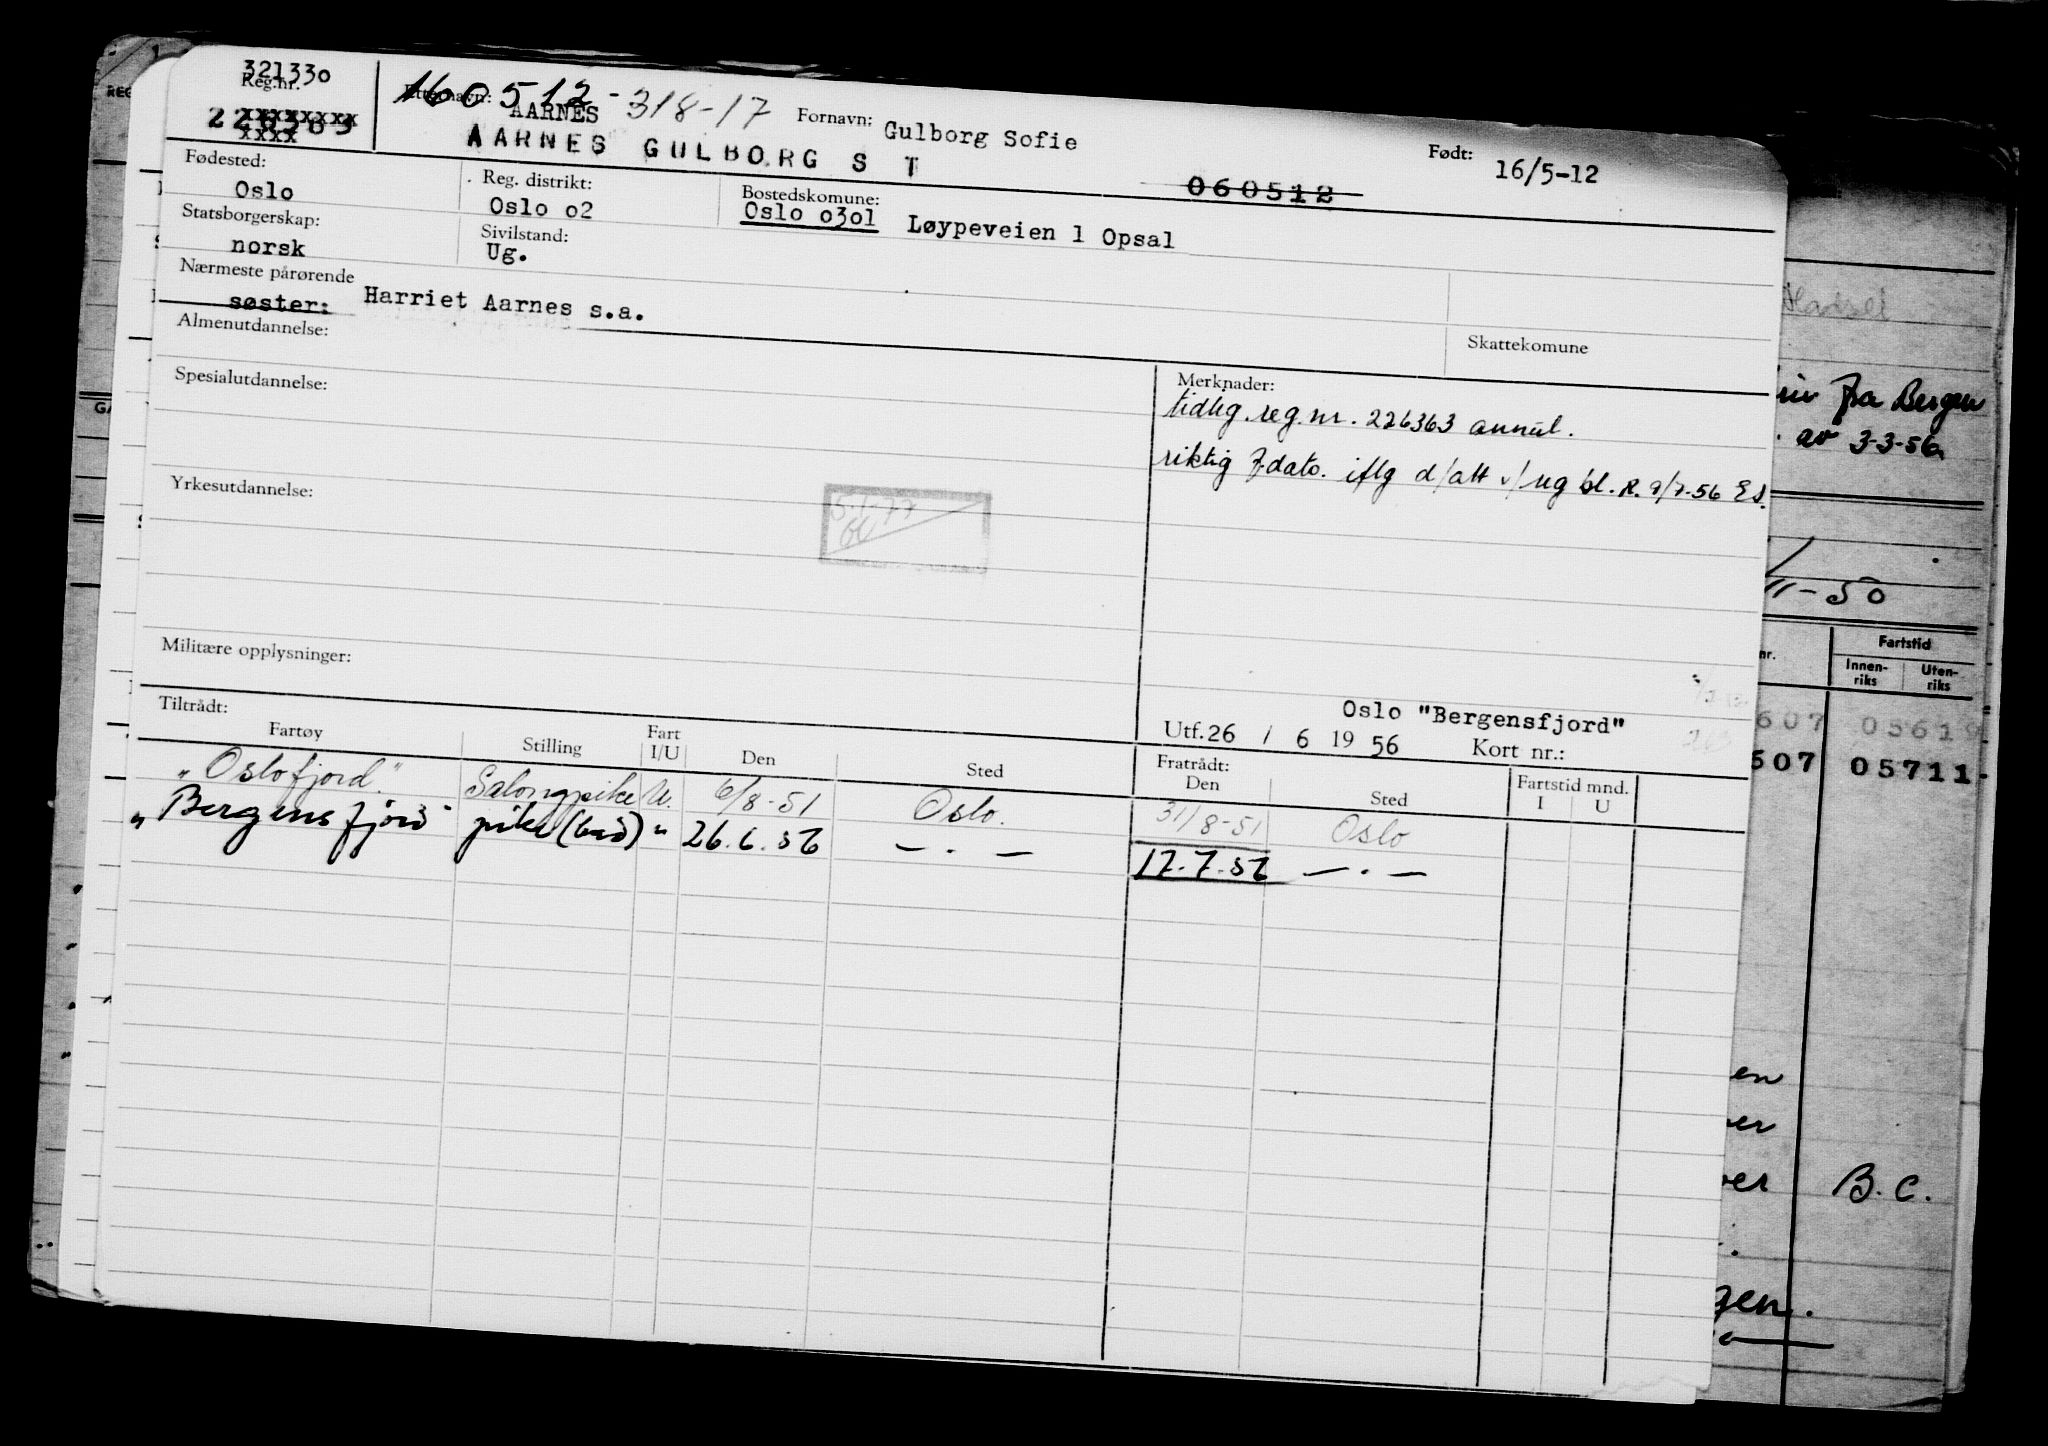 321330
Reg.nr.
160512-318-17
Etternavn: AARNES Fornavn: Gulborg Sofie Født: 16/5-12
xxxxxxxx
xxxx
AARNES GULBORG S T
060512
Fødested: Reg. distrikt: Bostedskomune:
Oslo Oslo o2 Oslo o3o1 Løypeveien 1 Opsal
Statsborgerskap: Sivilstand:
norsk Ug.
Nærmeste pårørende
søster: Harriet Aarnes s.a.
Almenutdannelse: Skattekomune
Spesialutdannelse: Merknader:
tidlig. reg. nr. 226363 annul.
riktig f.dato. iflg d/att v/ug bl. R. 9/7-56 ES.
Yrkesutdannelse:
5-1-77
Militære opplysninger:
Oslo "Bergensfjord"
Utf. 26 / 6 19 56 Kort nr.:
Tiltrådt: Fratrådt:
Fartøy Stilling Fart I/U Den Sted Den Sted Fartstid mnd. I U
"Oslofjord." Salongpike U. 6/8-51 Oslo. 31/8-51 Oslo
"Bergensfjord" pike (bad) " 26.6.56 — . — 17.7.56 — . —
Hadsel
fra Bergen
av 3-3-56
11-50
nr. Fartstid
Innen-riks Uten-riks
607 05619
507 05711-
en
er
ver B.C.
gen.